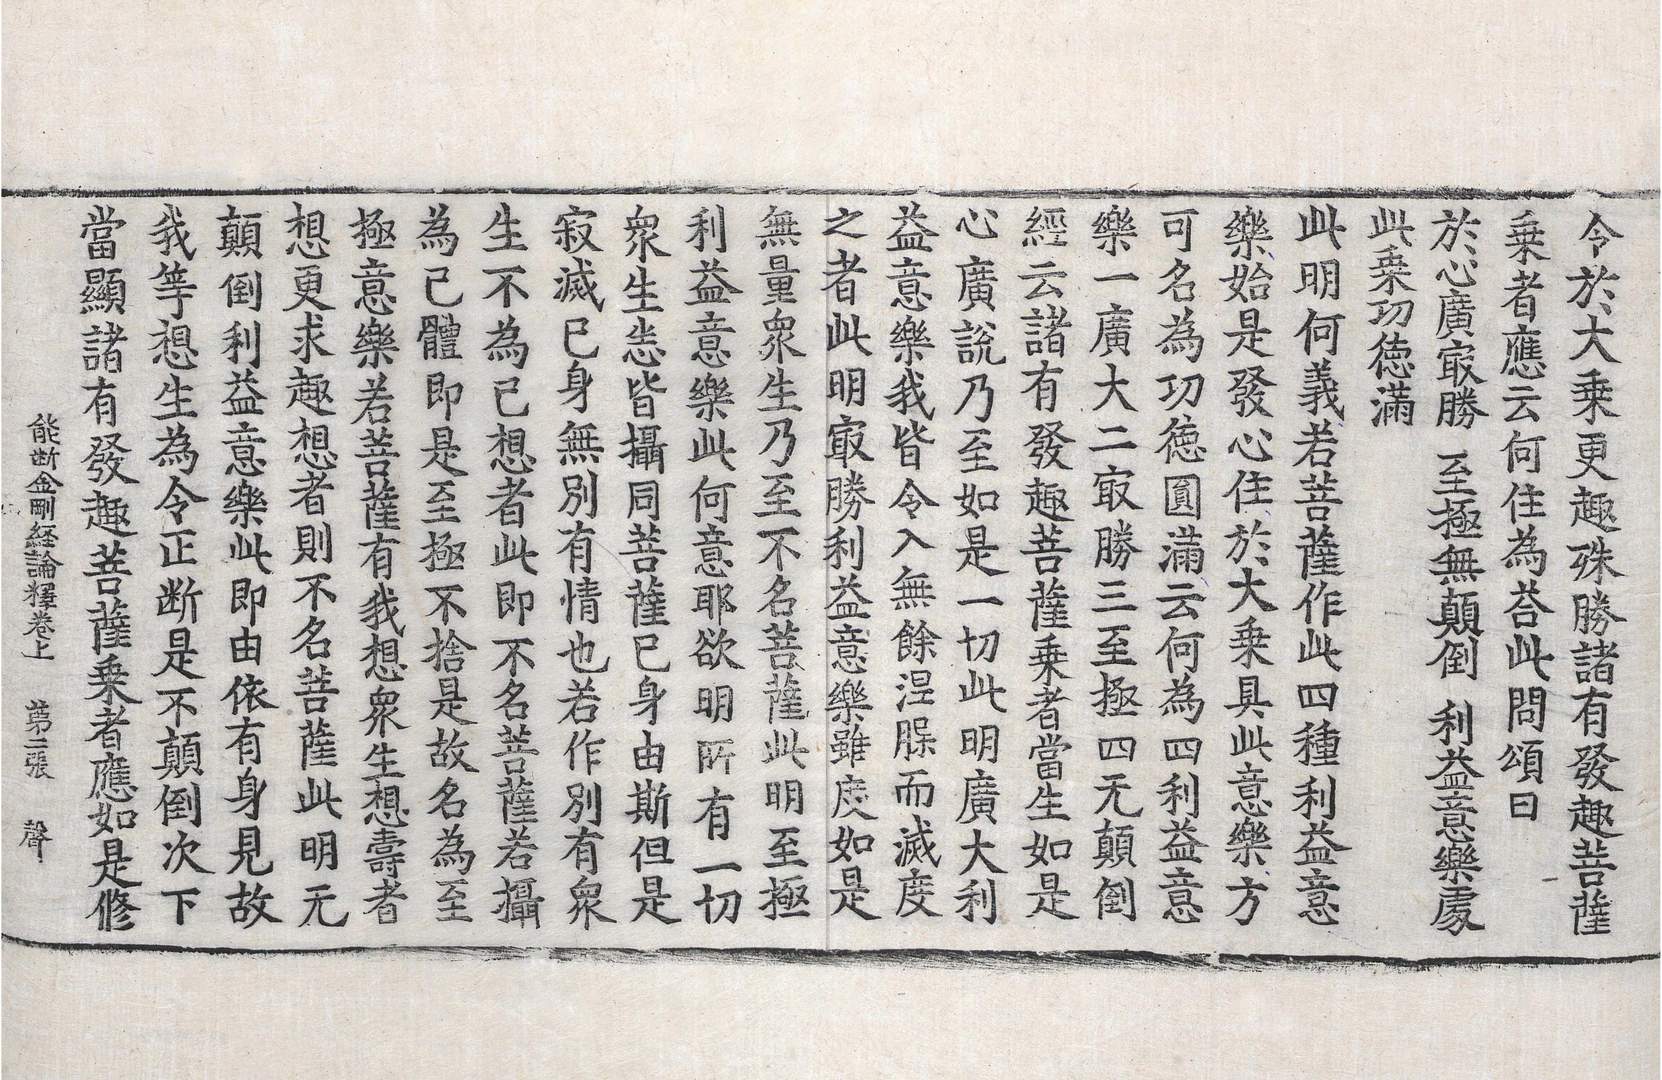 今於大乗更趣殊勝諸有發趣菩薩
乗者應云何住為荅此問頌曰
於心廣㝡勝 至極無顛倒 利益意樂處
此乗功徳滿
此明何義若菩薩作此四種利益意
樂始是發心住於大乗具此意樂方
可名為功徳圎滿云何為四利益意
樂一廣大二㝡勝三至極四无顛倒
經云諸有發趣菩薩乗者當生如是
心廣說乃至如是一切此明廣大利
益意樂我皆令入無餘涅槃而滅度
之者此明㝡勝利益意樂雖度如是
無量衆生乃至不名菩薩此明至極
利益意樂此何意耶欲明所有一切
衆生悉皆攝同菩薩已身由斯但是
寂滅已身無別有情也若作別有衆
生不為已想者此即不名菩薩若攝
為已體即是至極不捨是故名為至
極意樂若菩薩有我想衆生想壽者
想更求趣想者則不名菩薩此明无
顛倒利益意樂此即由依有身見故
我等想生為令正断是不顛倒次下
當顯諸有發趣菩薩乗者應如是修
能断金剛経論釋卷上 第二張 聲